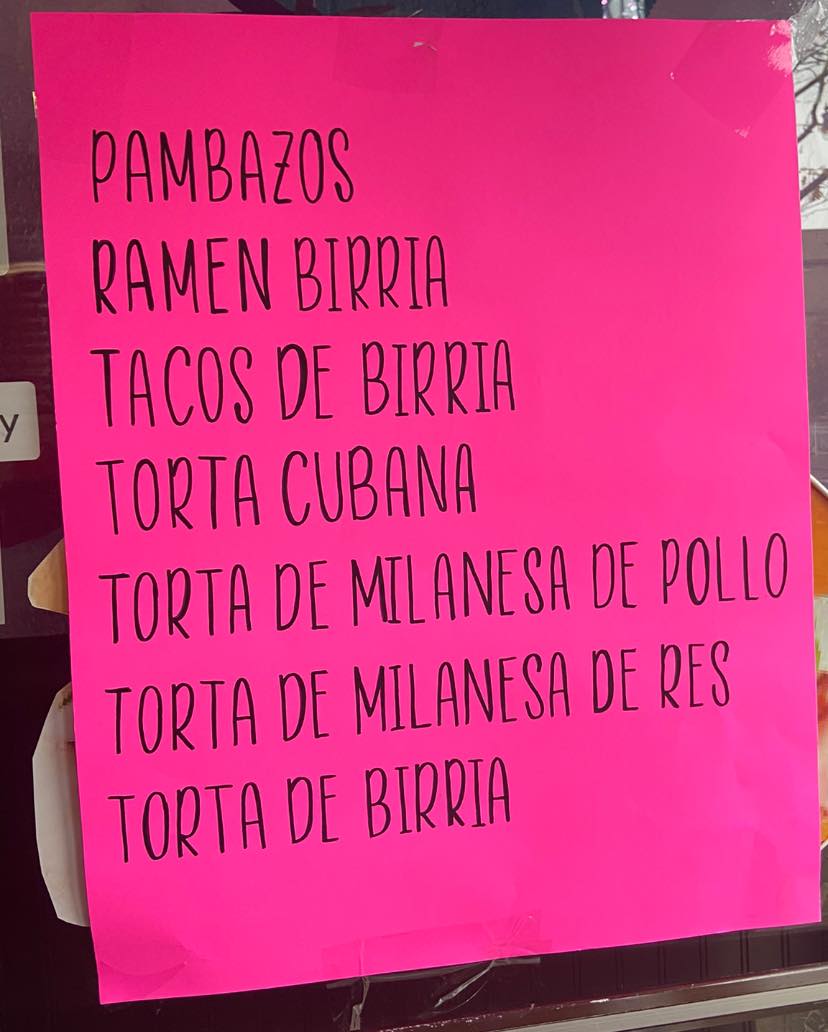 PAMBAZOS
RAMEN BIRRIA
TACOS DE BIRRIA
TORTA CUBANA
TORTA DE MILANESA DE POLLO
TORTA DE MILANESA DE RES
TORTA DE BIRRIA
y